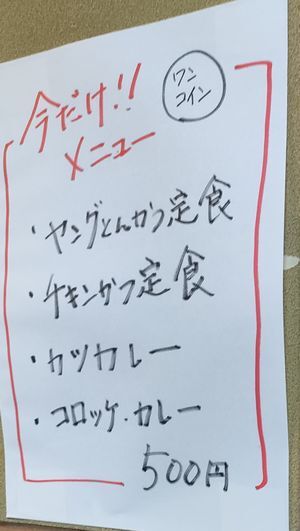 今だけ!!
ワン
コイン
メニュー
・ヤングとんかつ定食
・チキンかつ定食
・カツカレー
・コロッケ・カレー
500円